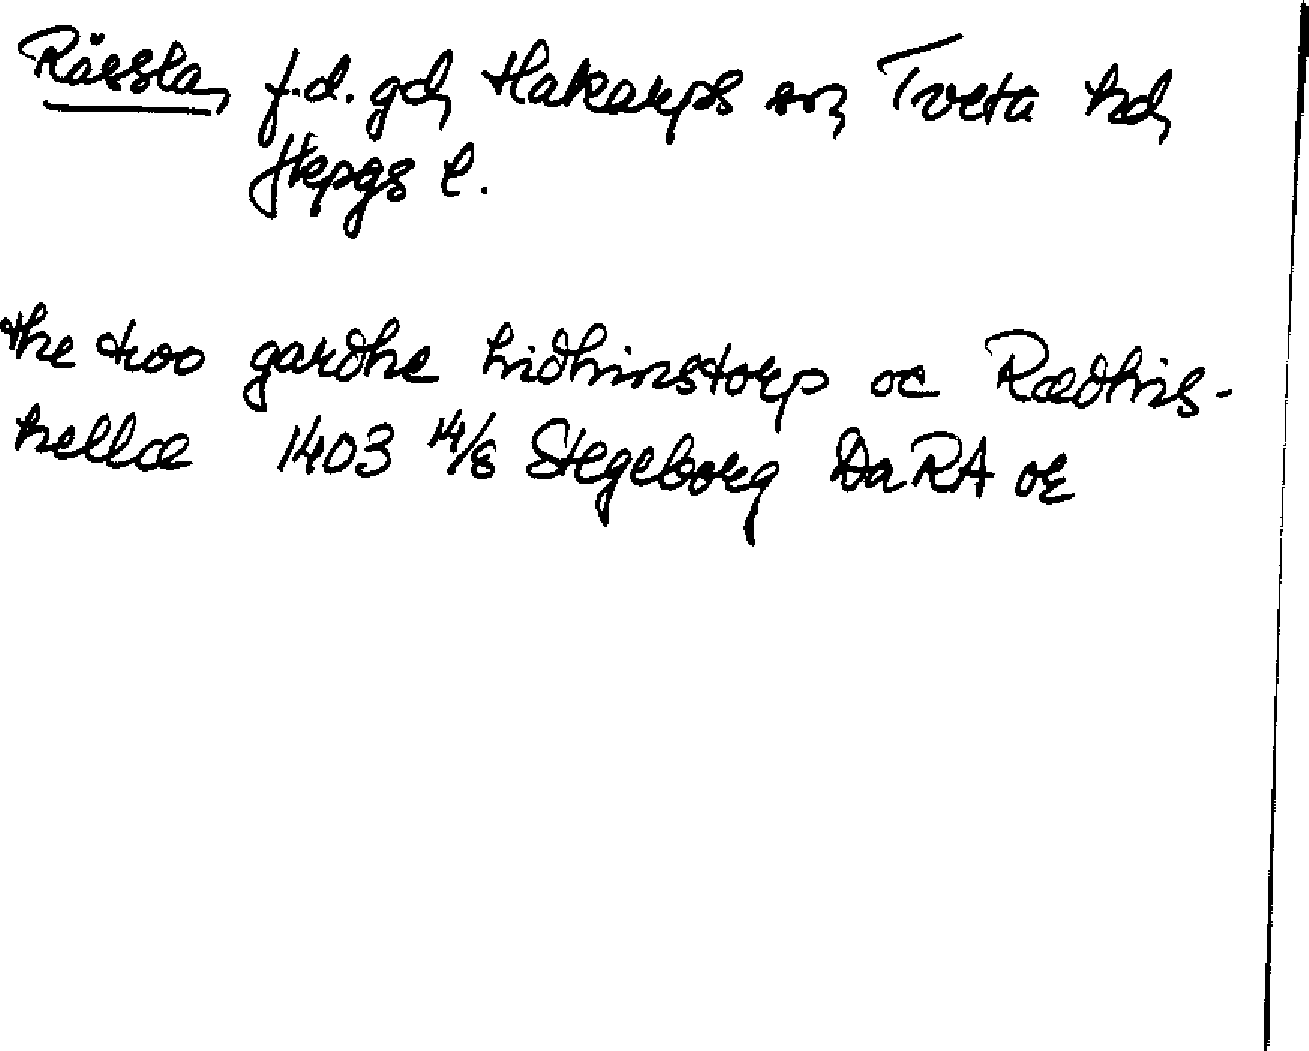 Rässla, f.d. gd, Hakarps sn, Tveta hd,
Jkpgs l.
the twa gardhe hidhinstorp oc Rædhis-
hellæ 1403 14/8 Stegeborg DaRA or